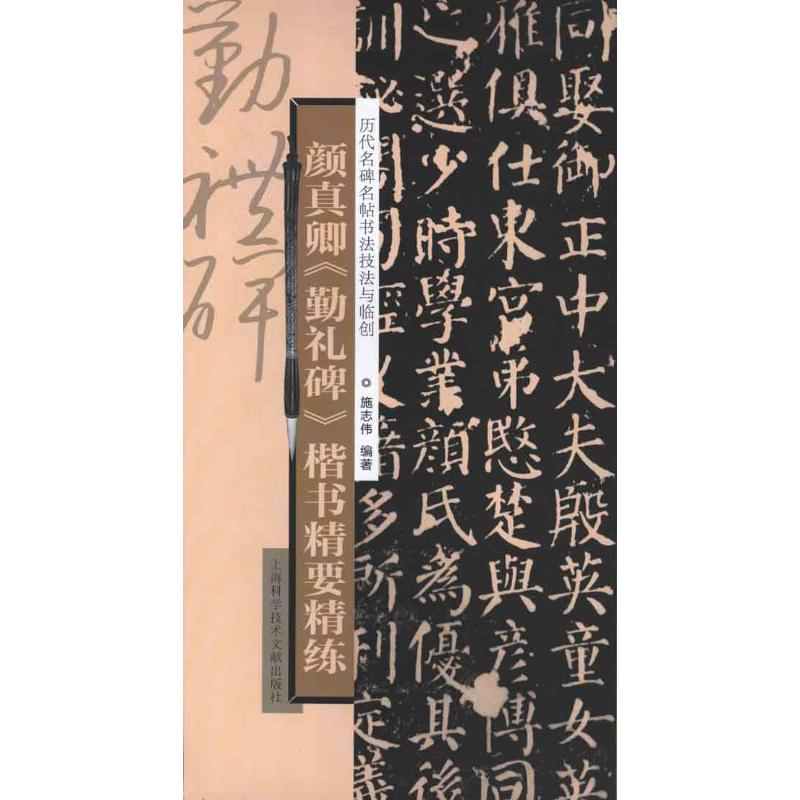 同娶御正中大夫殷英童女英
雅俱仕東宮弟愍楚與彦博同
之選少時學業顔氏為優其後
訓秘閣司經史籍多所刊定義
历代名碑名帖书法技法与临创
◎施志伟 编著
颜真卿《勤礼碑》楷书精要精练
上海科学技术文献出版社
勤禮碑